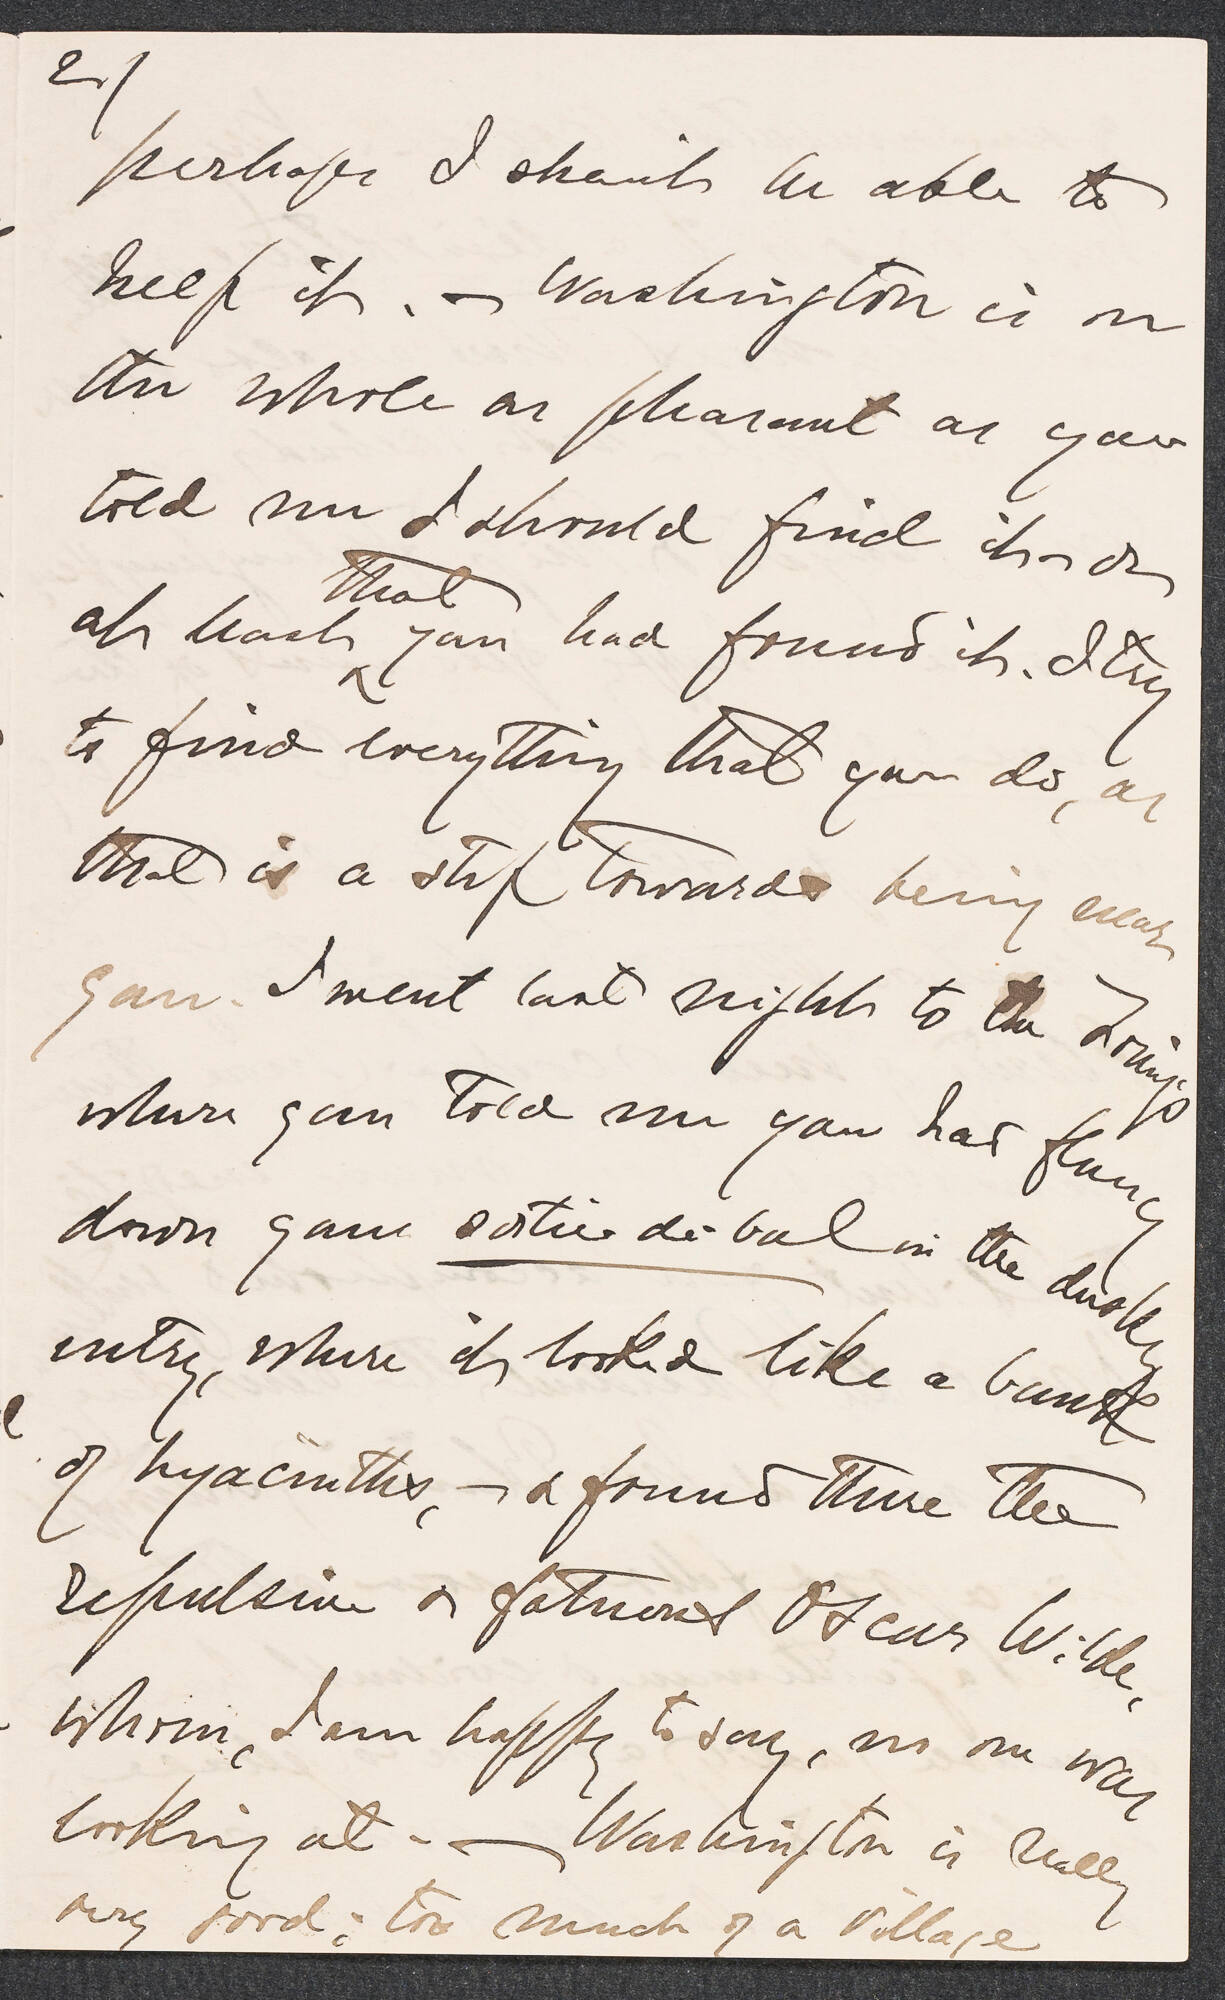 2/
perhaps I shan't be able to
help it. — Washington is on
the whole as pleasant as you
told me I should find it — or
at least that you had found it. I try
to find everything that you do, as
that is a step towards being near
you. I went last night to the Lorings
where you told me you had flung
down your sortie de bal in the dusky
entry, where it looked like a bunch
of hyacinths, — & found there the
repulsive & fatuous Oscar Wilde,
whom, I am happy to say, no one was
looking at. — Washington is really
very good; too much of a village